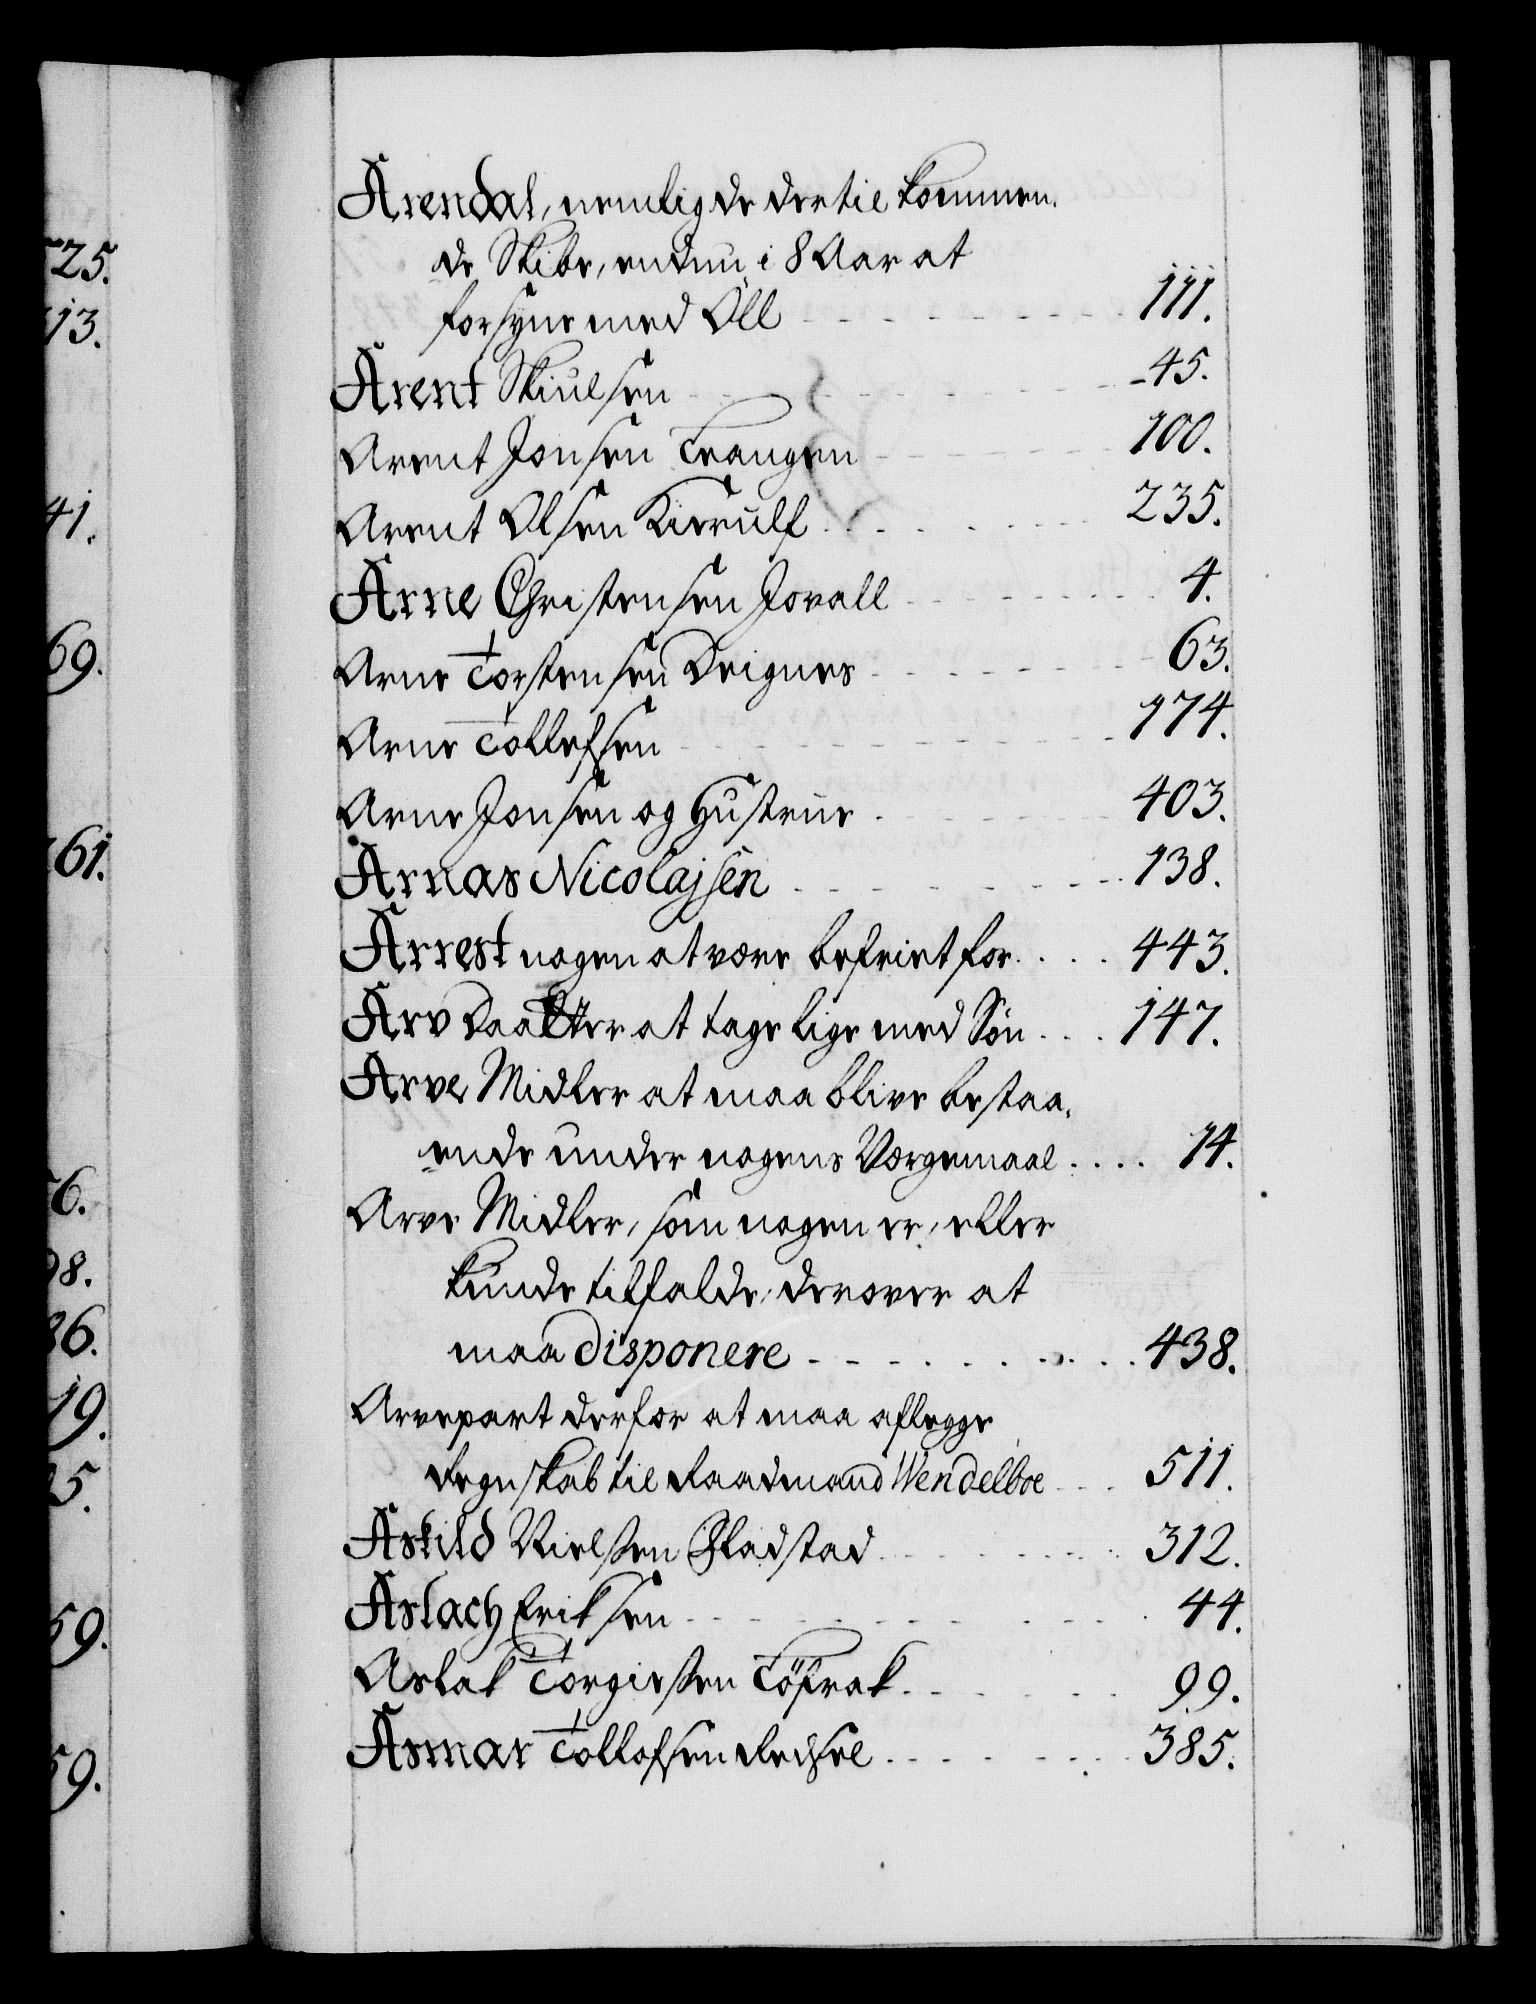 Arendal, nemlig de dertil kommen-
de Skibe, endnu i 8 Aar at
forsyne med Öll 111.
Arent Skiulsen 45.
Arent Jonsen Trangen 100.
Arent Olsen Kierulf 235.
Arne Christensen Jovall 4.
Arne Torstensen Deignes 63.
Arne Tollefsen 174.
Arne Jonsen og Hustrue 403.
Arnas Nicolajsen 138.
Arrest nogen at være befriet for 443.
Arv Daatter at tage lige med Søn 147.
Arve Midler at maa blive bestaa-
ende under nogens Værgemaal 14.
Arve Midler, som nogen er, eller
kunde tilfalde, derover at
maa disponere 438.
Arvepart derfor at maa aflegge
Regnskab til Raadmand Wendelboe 511.
Askild Nielsen Fladstad 312.
Aslach Eriksen 44.
Aslak Torgiersen Töfrak 99.
Asmar Tollofsen 385.
525.
13.
41.
69.
61.
6.
98.
36.
19.
5.
59.
59.